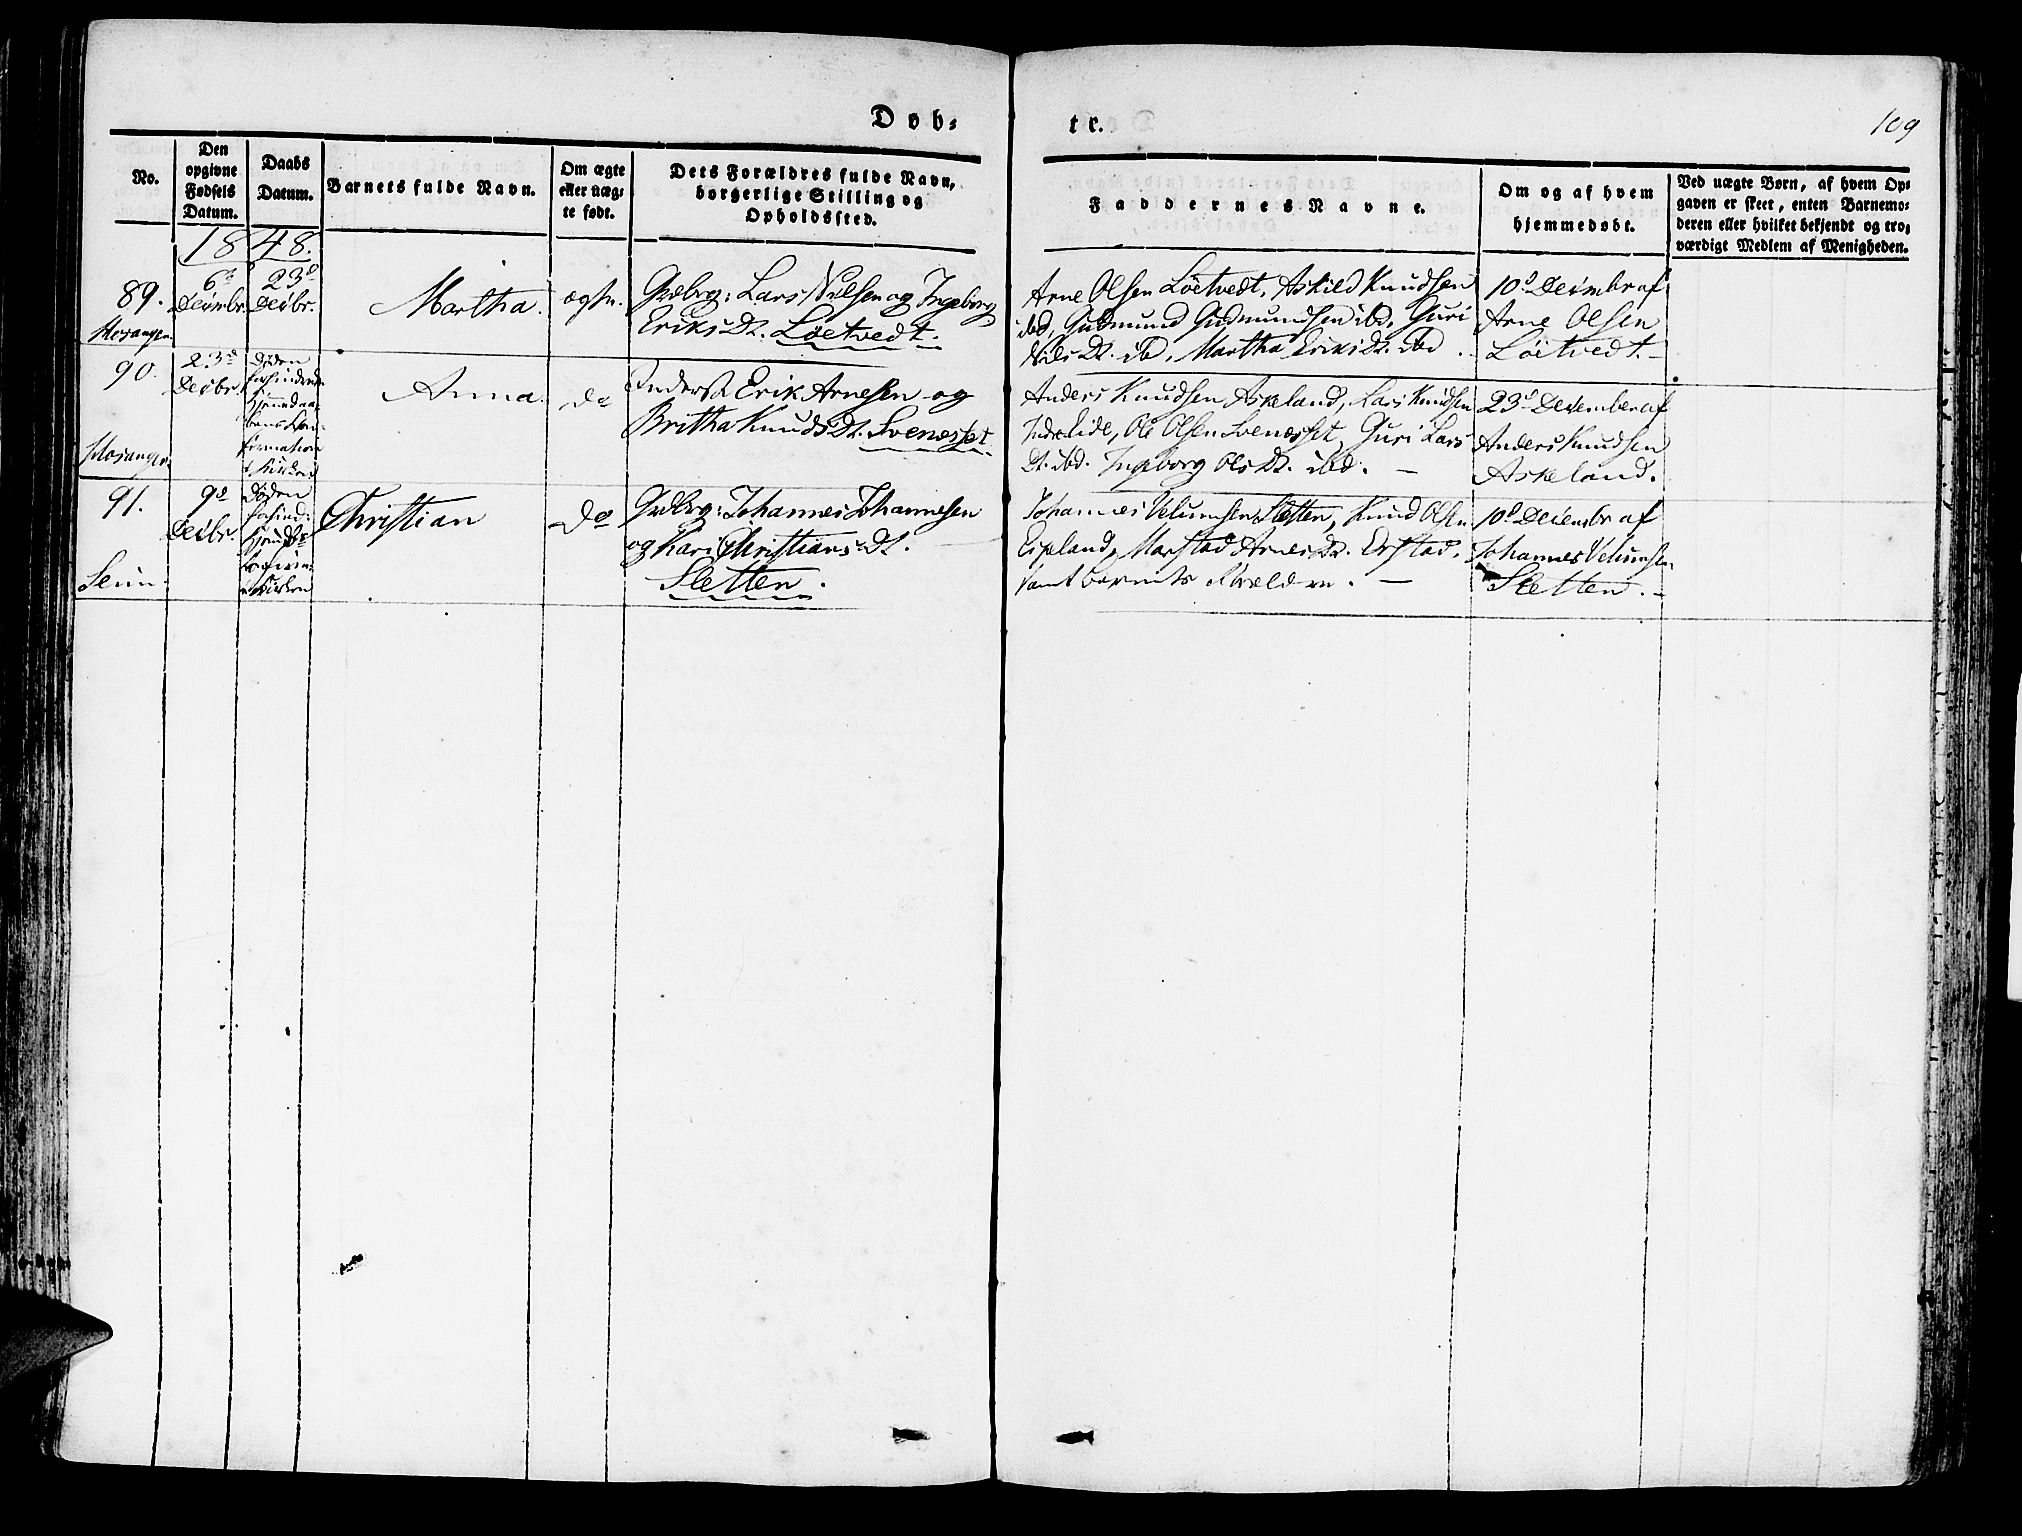 Døb-
tr.
109
No.
Den
opgivne
Fødsels
Datum.
Daabs
Datum.
Barnets fulde Navn.
Om ægte
eller uæg-
te født.
Dets Forældres fulde Navn,
borgerlige Stilling og
Opholdssted.
Faddernes Navne.
Om og af hvem
hjemmedøbt.
Ved uægte Børn, af hvem Op-
gaven er skeet, enten Barnemo-
deren eller hvilket bekjendt og tro-
værdigt Medlem af Menigheden.
1848.
89.
Hosanger
6te
Decembr.
23d
Decbr.
Martha.
Grdbrg: Lars Nilsen og Ingeborg
Eriks Dt. Løetvedt.
Arne Olsen Løetvedt, Askild Knudsen
ibd, Gudmund Gudmundsen ibd, Guri
Nils Dt. ibd, Martha Eriks Dt. ibd.
10d Decembr af
Arne Olsen
Löitvedt.
90.
Hosanger
23d
Decbr.
Døden
forhindrede
Hjemmedaa-
bens Kon-
firmation
i Kirken
Anna.
do
Erik Arnesen og
Britha Knuds Dt. Svenesset.
Anders Knudsen Askeland, Lars Knudsen
Indre Eide, Ole Olsen Svenesset, Guri Lars
Dt. ibd. Ingeborg Ols Dt. ibd.
23d December af
Anders Knudsen
Askeland.
91.
Seim
9d
Decbr.
Døden
forhind:
i Kirken
Christian
Do
Grdbrg: Johannes Johannesen
og Kari Christians Dt.
Sletten.
Johannes Velumsen Sletten, Knud Olsen
Eipland, Arnes Dt.
samt barnets Forældre.
10d Decembr af
Johannes Velumsen
Sletten.